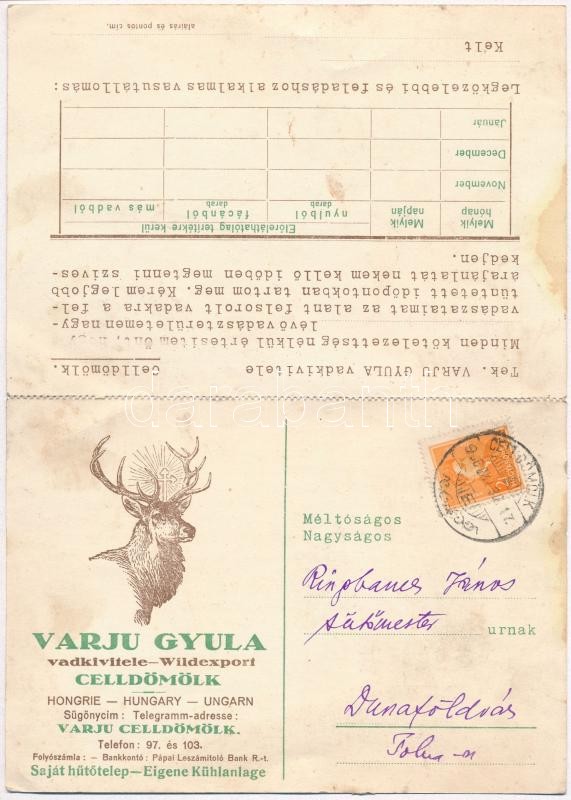 Tek. VARJU GYULA vadkivitele Celldömölk.
Minden kötelezettség nélkül értesitem Önt, hogy
lévő vadászterületemen nagy-
vadászataimat az alant felsorolt vadakra a fel-
tüntetett időpontokban tartom meg. Kérem legjobb
árajánlatát nekem kellő időben megtenni szives-
kedjen.
Melyik hónap Melyik napján Előreláthatólag teritékre kerül
nyulból darab fácánból darab más vadból
November
December
Január
Legközelebbi és feladáshoz alkalmas vasutállomás:
Kelt
aláirás és pontos cim.
CELLDÖMÖLK
VARJU GYULA
vadkivitele—Wildexport
CELLDÖMÖLK
HONGRIE — HUNGARY — UNGARN
Sügönycim: Telegramm-adresse:
VARJU CELLDÖMÖLK.
Telefon: 97. és 103.
Folyószámla: — Bankkontó: Pápai Leszámitoló Bank R.-t.
Saját hűtőtelep—Eigene Kühlanlage
Méltóságos
Nagyságos
János
sütőmester urnak
Dunaföldvár
Tolna-m
darabanth